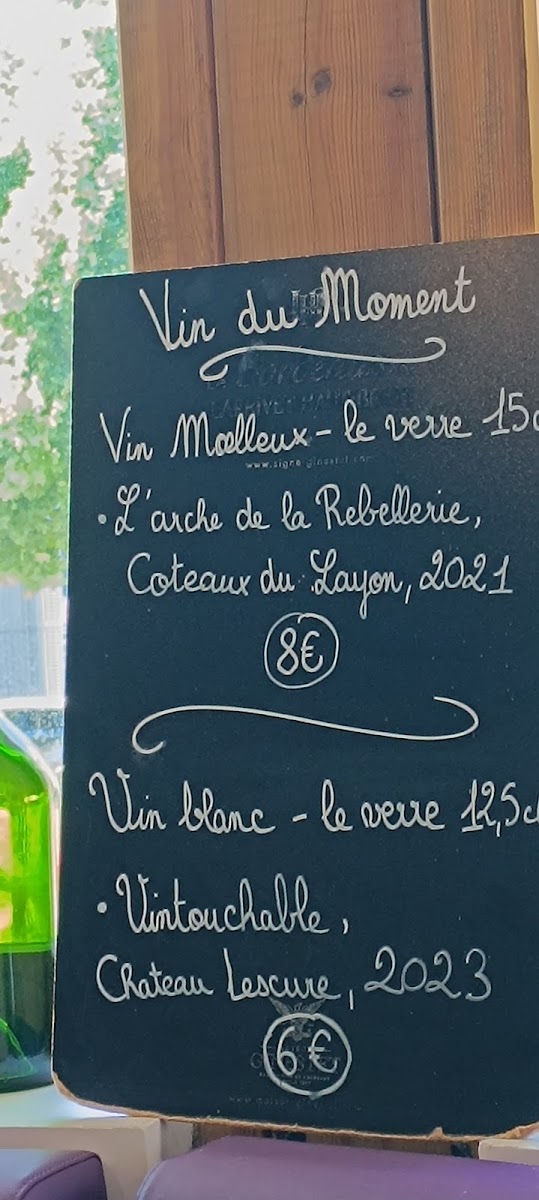 Vin du Moment
Vin Mœlleux - le verre 15c
• L'arche de la Rebellerie,
Coteaux du Layon, 2021
8€
Vin blanc - le verre 12,5c
• Vintouchable,
Chateau Lescure, 2023
6€